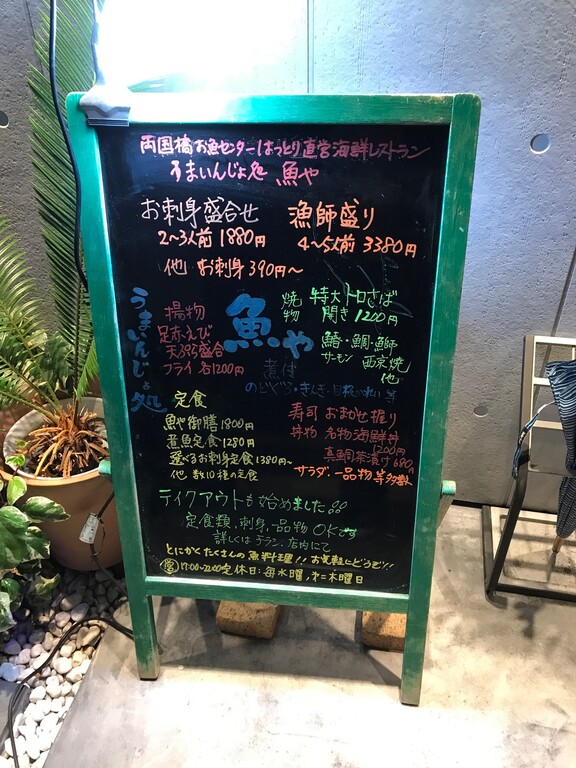 両国橋お魚センターはっとり直営海鮮レストラン
うまいんじょ処 魚や
お刺身盛合せ
2〜3人前 1880円
他 お刺身 390円〜
漁師盛り
4〜5人前 3380円
うまいんじょ処
揚物
足赤えび
天ぷら盛合
フライ 各1200円
魚や
焼物
特大トロさば
開き 1200円
鰆・鯛・鰤
サーモン 西京焼
他
煮付
のどぐろ・きんき・
等
定食
魚や御膳 1800円
煮魚定食 1280円
選べるお刺身定食 1380円〜
他 数10種の定食
寿司 おまかせ握り
丼物 名物海鮮丼
1200円
真鯛茶漬け 680円
サラダ・一品物等多数
テイクアウトも始めました!!
定食類、刺身、一品物 OKです
詳しくはチラシ、店内にて
とにかくたくさんの魚料理!! お気軽にどうぞ!!
17:00〜22:00 定休日:毎水曜、第二木曜日